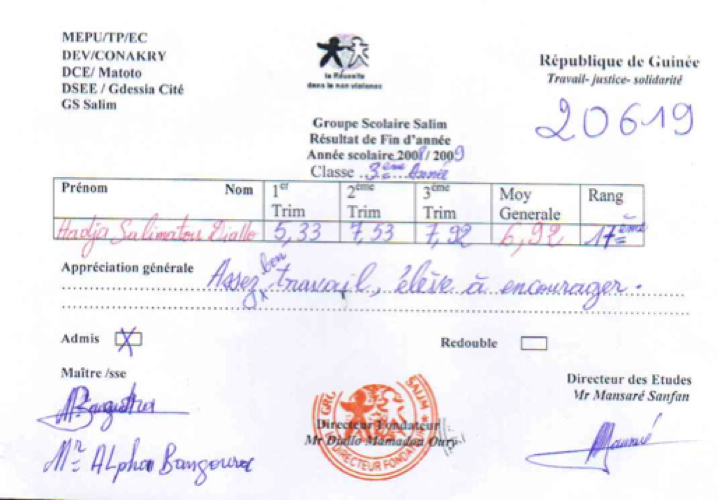 MEPU/TP/EC
DEV/CONAKRY
DCE/ Matoto
DSEE / Gdessia Cité
GS Salim
la Réussite
dans la non violence
République de Guinée
Travail- justice- solidarité
20619
Groupe Scolaire Salim
Résultat de Fin d'année
Année scolaire 2008/ 2009
Classe 3ème Année
Prénom Nom 1er Trim 2ème Trim 3ème Trim Moy Generale Rang
Hadja Salimatou Diallo 5,33 7,53 7,92 6,92 17ème
Appréciation générale Assez bon travail, élève à encourager.
Admis X Redouble
Maître /sse
Directeur des Etudes
Mr Mansaré Sanfan
Directeur Fondateur
Mr Diallo Mamadou Oury
SALIM
DIRECTEUR FONDA
Mr Alpha Bangoura